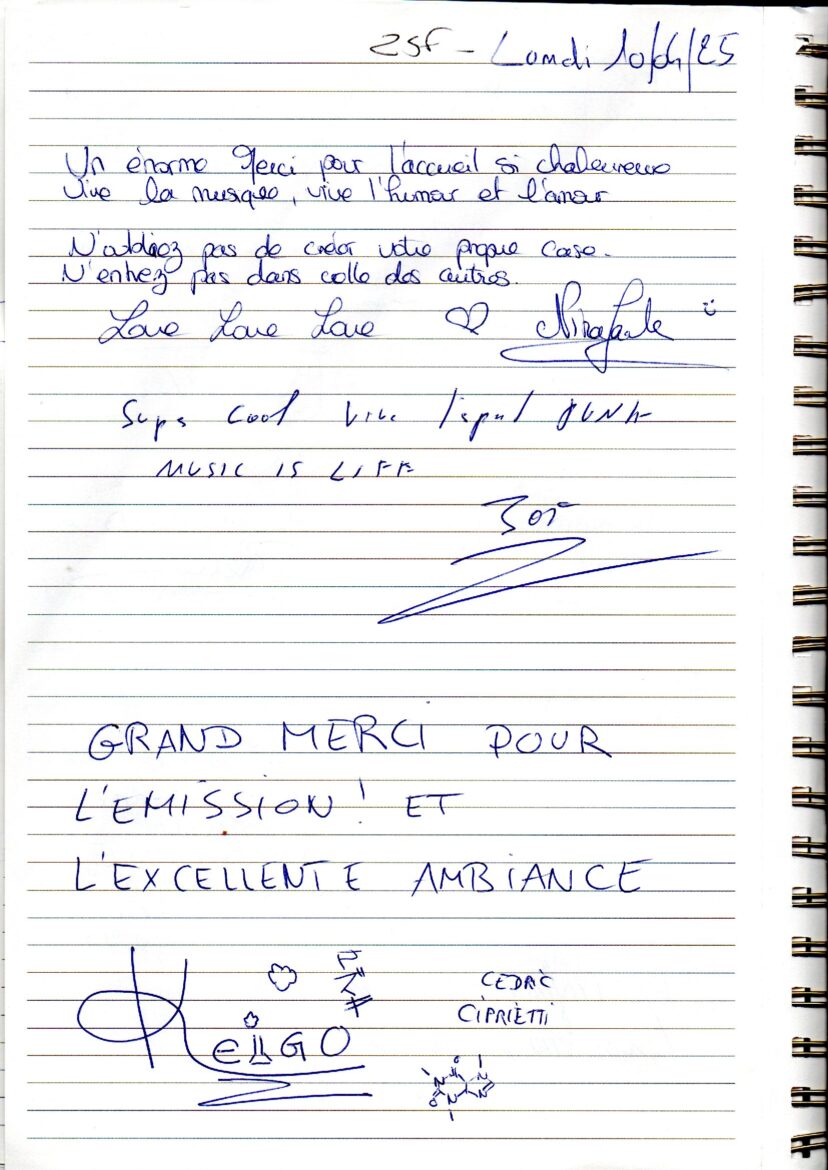 ZSF - Lundi 10/04/25
Un énorme Merci pour l'accueil si chaleureux
Vive la musique, vive l'humour et l'amour
N'oubliez pas de créer votre propre case.
N'entrez pas dans celle des autres.
Love Love Love
Supe Cool Vive l'esprit PUNK
MUSIC IS LIFE
GRAND MERCI POUR
L'EMISSION ! ET
L'EXCELLENTE AMBIANCE
KEIGO
CEDRIC
CIPRIETTI